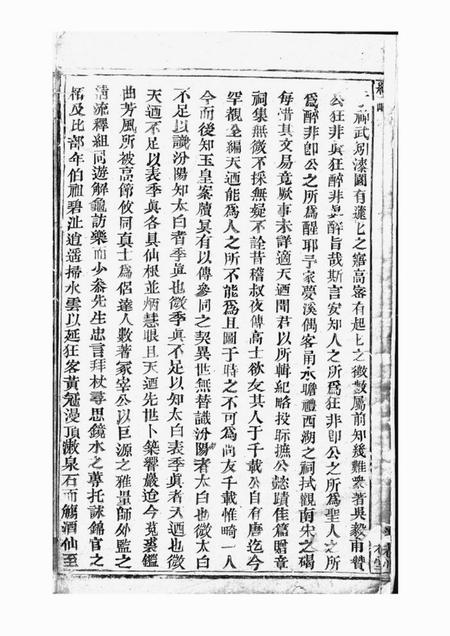 神武別漆園有遽匕之寤高密有起匕之徵數屬前知幾難衆著吳毅甫贊
公狂非眞狂醉非眞醉旨哉斯言安知人之所爲狂非卽公之所爲聖人之所
爲醉非卽公之所爲醒耶予家夢溪偶客甬水瞻禮西湖之祠拭觀南宋之碣
每惜其文易竟厥事未詳適天迺間君以所輯紀略投际摭公懿蹟佳篇贈章
祠集無微不採無疑不詮昔稽叔夜傳高士欲友其人于千載公自有唐迄今
罕覩全編天迺能爲人之所不能爲且圖于時之不可爲尚友千載惟畸一人
今而後知玉皇案牘眞有以傳參同之契異世無替識汾陽者太白也微太白
不足以識汾陽知太白者季眞也微季眞不足以知太白表季眞者天迺也微
天迺不足以表季眞各具仙根並炳慧眼且天迺先世卜築響巖迨今菟裘鑑
曲芳風所被高節攸同眞士爲侶達人數著冢宰公以巨源之雅量師外監之
淸流釋組同遊解龜訪樂而少叅先生忠言拜杖尋思鏡水之蓴托詠錦官之
栢及比部年伯祖碧沚逍遙掃水雲以延狂客黃冠漫頂漱泉石而觴酒仙至